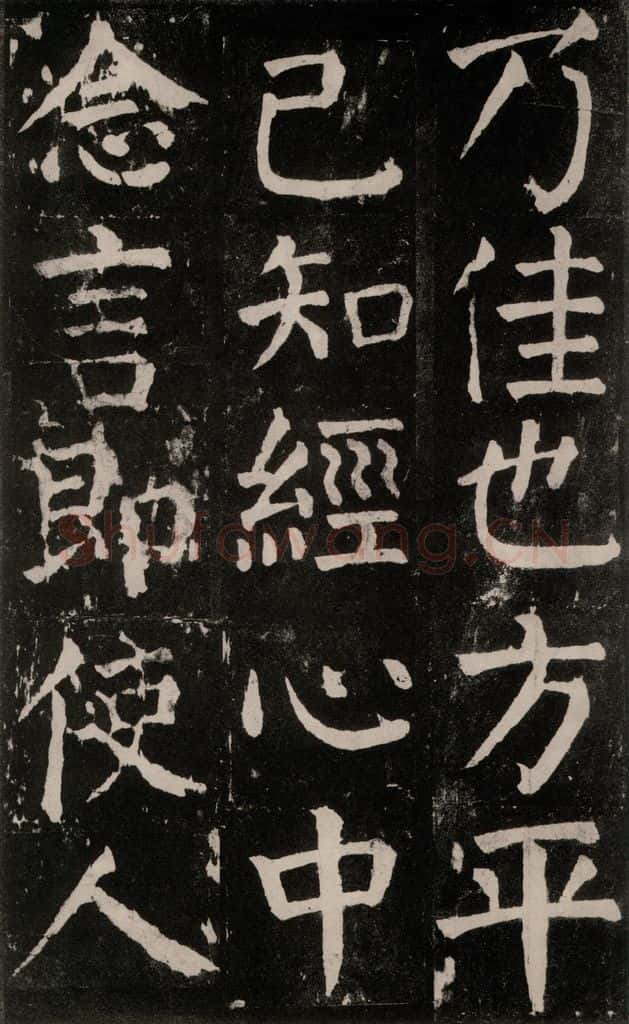 乃佳也方平
已知經心中
念言即使人
Shufawang.CN